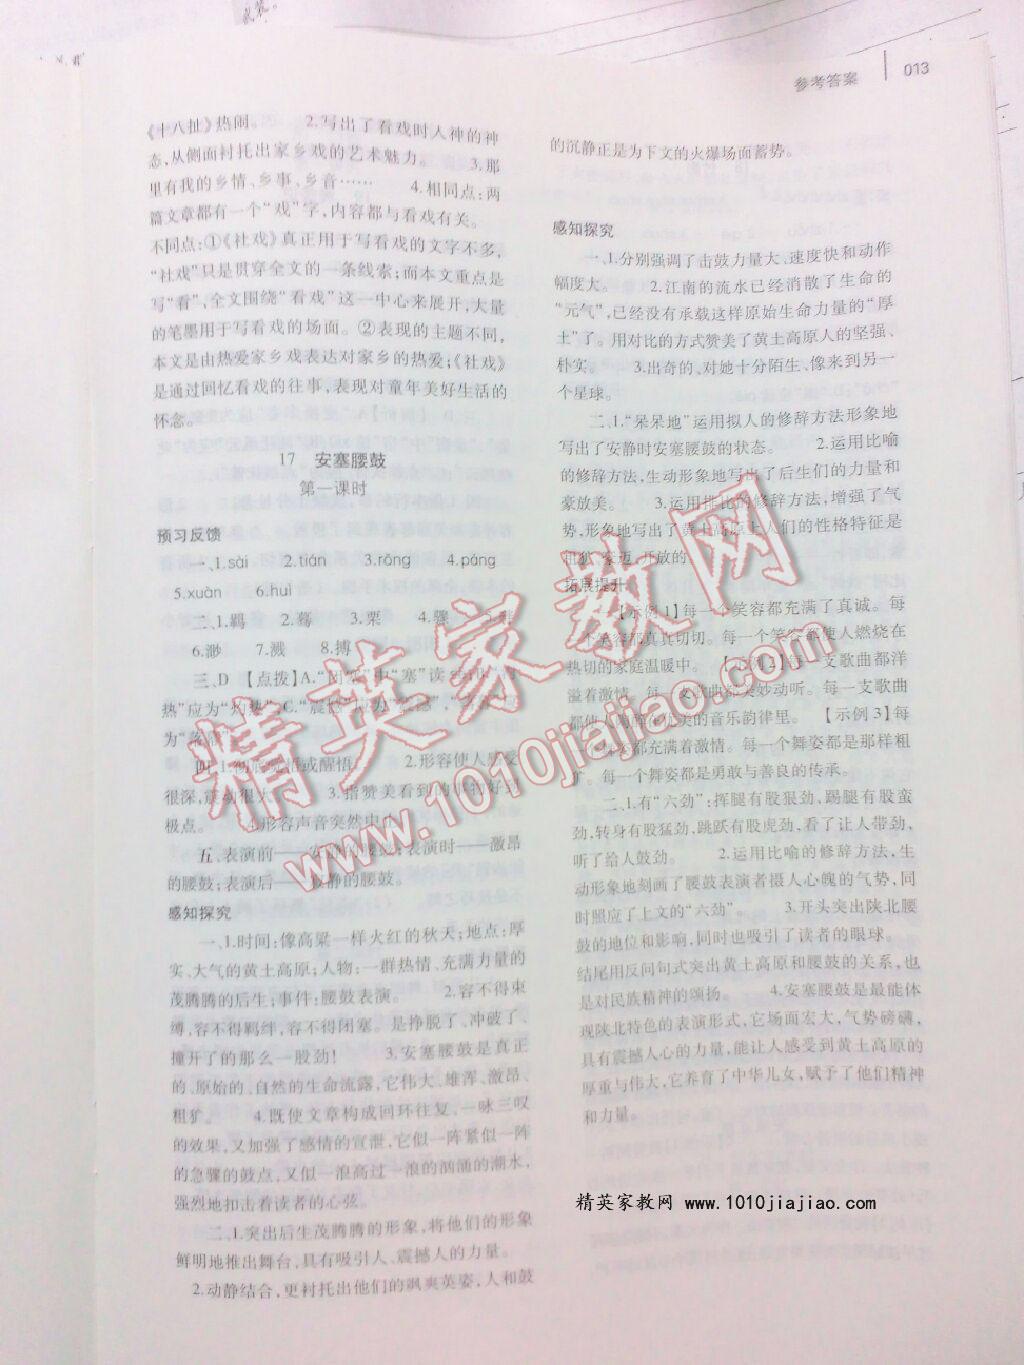 参考答案
013
《十八扯》热闹。 2.写出了看戏时人神的神
态,从侧面衬托出家乡戏的艺术魅力。 3.那
里有我的乡情、乡事、乡音…… 4.相同点:两
篇文章都有一个“戏”字,内容都与看戏有关。
不同点:①《社戏》真正用于写看戏的文字不多,
“社戏”只是贯穿全文的一条线索;而本文重点是
写“看”,全文围绕“看戏”这一中心来展开,大量
的笔墨用于写看戏的场面。②表现的主题不同,
本文是由热爱家乡戏表达对家乡的热爱;《社戏》
是通过回忆看戏的往事,表现对童年美好生活的
怀念。
17 安塞腰鼓
第一课时
预习反馈
一、1.sài 2.tián 3.rǒng 4.páng
5.xuàn 6.huì
二、1.羁 2.蓦 3.栗 4.骤
6.渺 7.溅 8.搏
三、D 【点拨】A.“闭塞”中“塞”读
热”应为“灼热”;C.“震
为
四、1.彻底觉悟或醒悟。 2.形容使人感受
很深,震动很大。 3.指赞美看到的事物好到
极点。 4.形容声音突然中止。
五、表演前——安静的腰鼓;表演时——激昂
的腰鼓;表演后——寂静的腰鼓。
感知探究
一、1.时间:像高粱一样火红的秋天;地点:厚
实、大气的黄土高原;人物:一群热情、充满力量的
茂腾腾的后生;事件:腰鼓表演。 2.容不得束
缚,容不得羁绊,容不得闭塞。是挣脱了、冲破了、
撞开了的那么一股劲! 3.安塞腰鼓是真正
的、原始的、自然的生命流露,它伟大、雄浑、激昂、
粗犷。 4.既使文章构成回环往复、一咏三叹
的效果,又加强了感情的宣泄,它似一阵紧似一阵
的急骤的鼓点,又似一浪高过一浪的汹涌的潮水,
强烈地扣击着读者的心弦。
二、1.突出后生茂腾腾的形象,将他们的形象
鲜明地推出舞台,具有吸引人、震撼人的力量。
2.动静结合,更衬托出他们的飒爽英姿,人和鼓
的沉静正是为下文的火爆场面蓄势。
感知探究
一、1.分别强调了击鼓力量大、速度快和动作
幅度大。 2.江南的流水已经消散了生命的
“元气”,已经没有承载这样原始生命力量的“厚
土”了。用对比的方式赞美了黄土高原人的坚强、
朴实。 3.出奇的、对她十分陌生、像来到另一
个星球。
二、1.“呆呆地”运用拟人的修辞方法形象地
写出了安静时安塞腰鼓的状态。 2.运用比喻
的修辞方法,生动形象地写出了后生们的力量和
豪放美。 3.运用排比的修辞方法,增强了气
势,形象地写出了黄土高原上人们的性格特征是
粗犷、豪迈、开放的。
拓展提升
一、【示例1】每一个笑容都充满了真诚。每
一个笑容都真真切切。每一个笑容都使人燃烧在
热切的家庭温暖中。 【示例2】每一支歌曲都洋
溢着激情。每一支歌曲都美妙动听。每一支歌曲
都使人陶醉在优美的音乐韵律里。 【示例3】每
一个舞姿都充满着激情。每一个舞姿都是那样粗
犷。每一个舞姿都是勇敢与善良的传承。
二、1.有“六劲”:挥腿有股狠劲,踢腿有股蛮
劲,转身有股猛劲,跳跃有股虎劲,看了让人带劲,
听了给人鼓劲。 2.运用比喻的修辞方法,生
动形象地刻画了腰鼓表演者摄人心魄的气势,同
时照应了上文的“六劲”。 3.开头突出陕北腰
鼓的地位和影响,同时也吸引了读者的眼球。
结尾用反问句式突出黄土高原和腰鼓的关系,也
是对民族精神的颂扬。 4.安塞腰鼓是最能体
现陕北特色的表演形式,它场面宏大,气势磅礴,
具有震撼人心的力量,能让人感受到黄土高原的
厚重与伟大,它养育了中华儿女,赋予了他们精神
和力量。
精英家教网
www.1010jiajiao.com
精英家教网 www.1010jiajiao.com